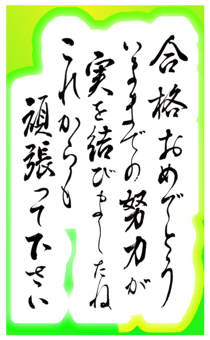 合格おめでとう
いままでの努力が
実を結びましたね
これからも
頑張って下さい